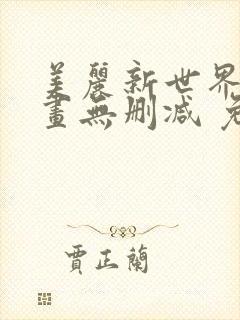 美麗新世界
畫無刪減 免
賈正蘭